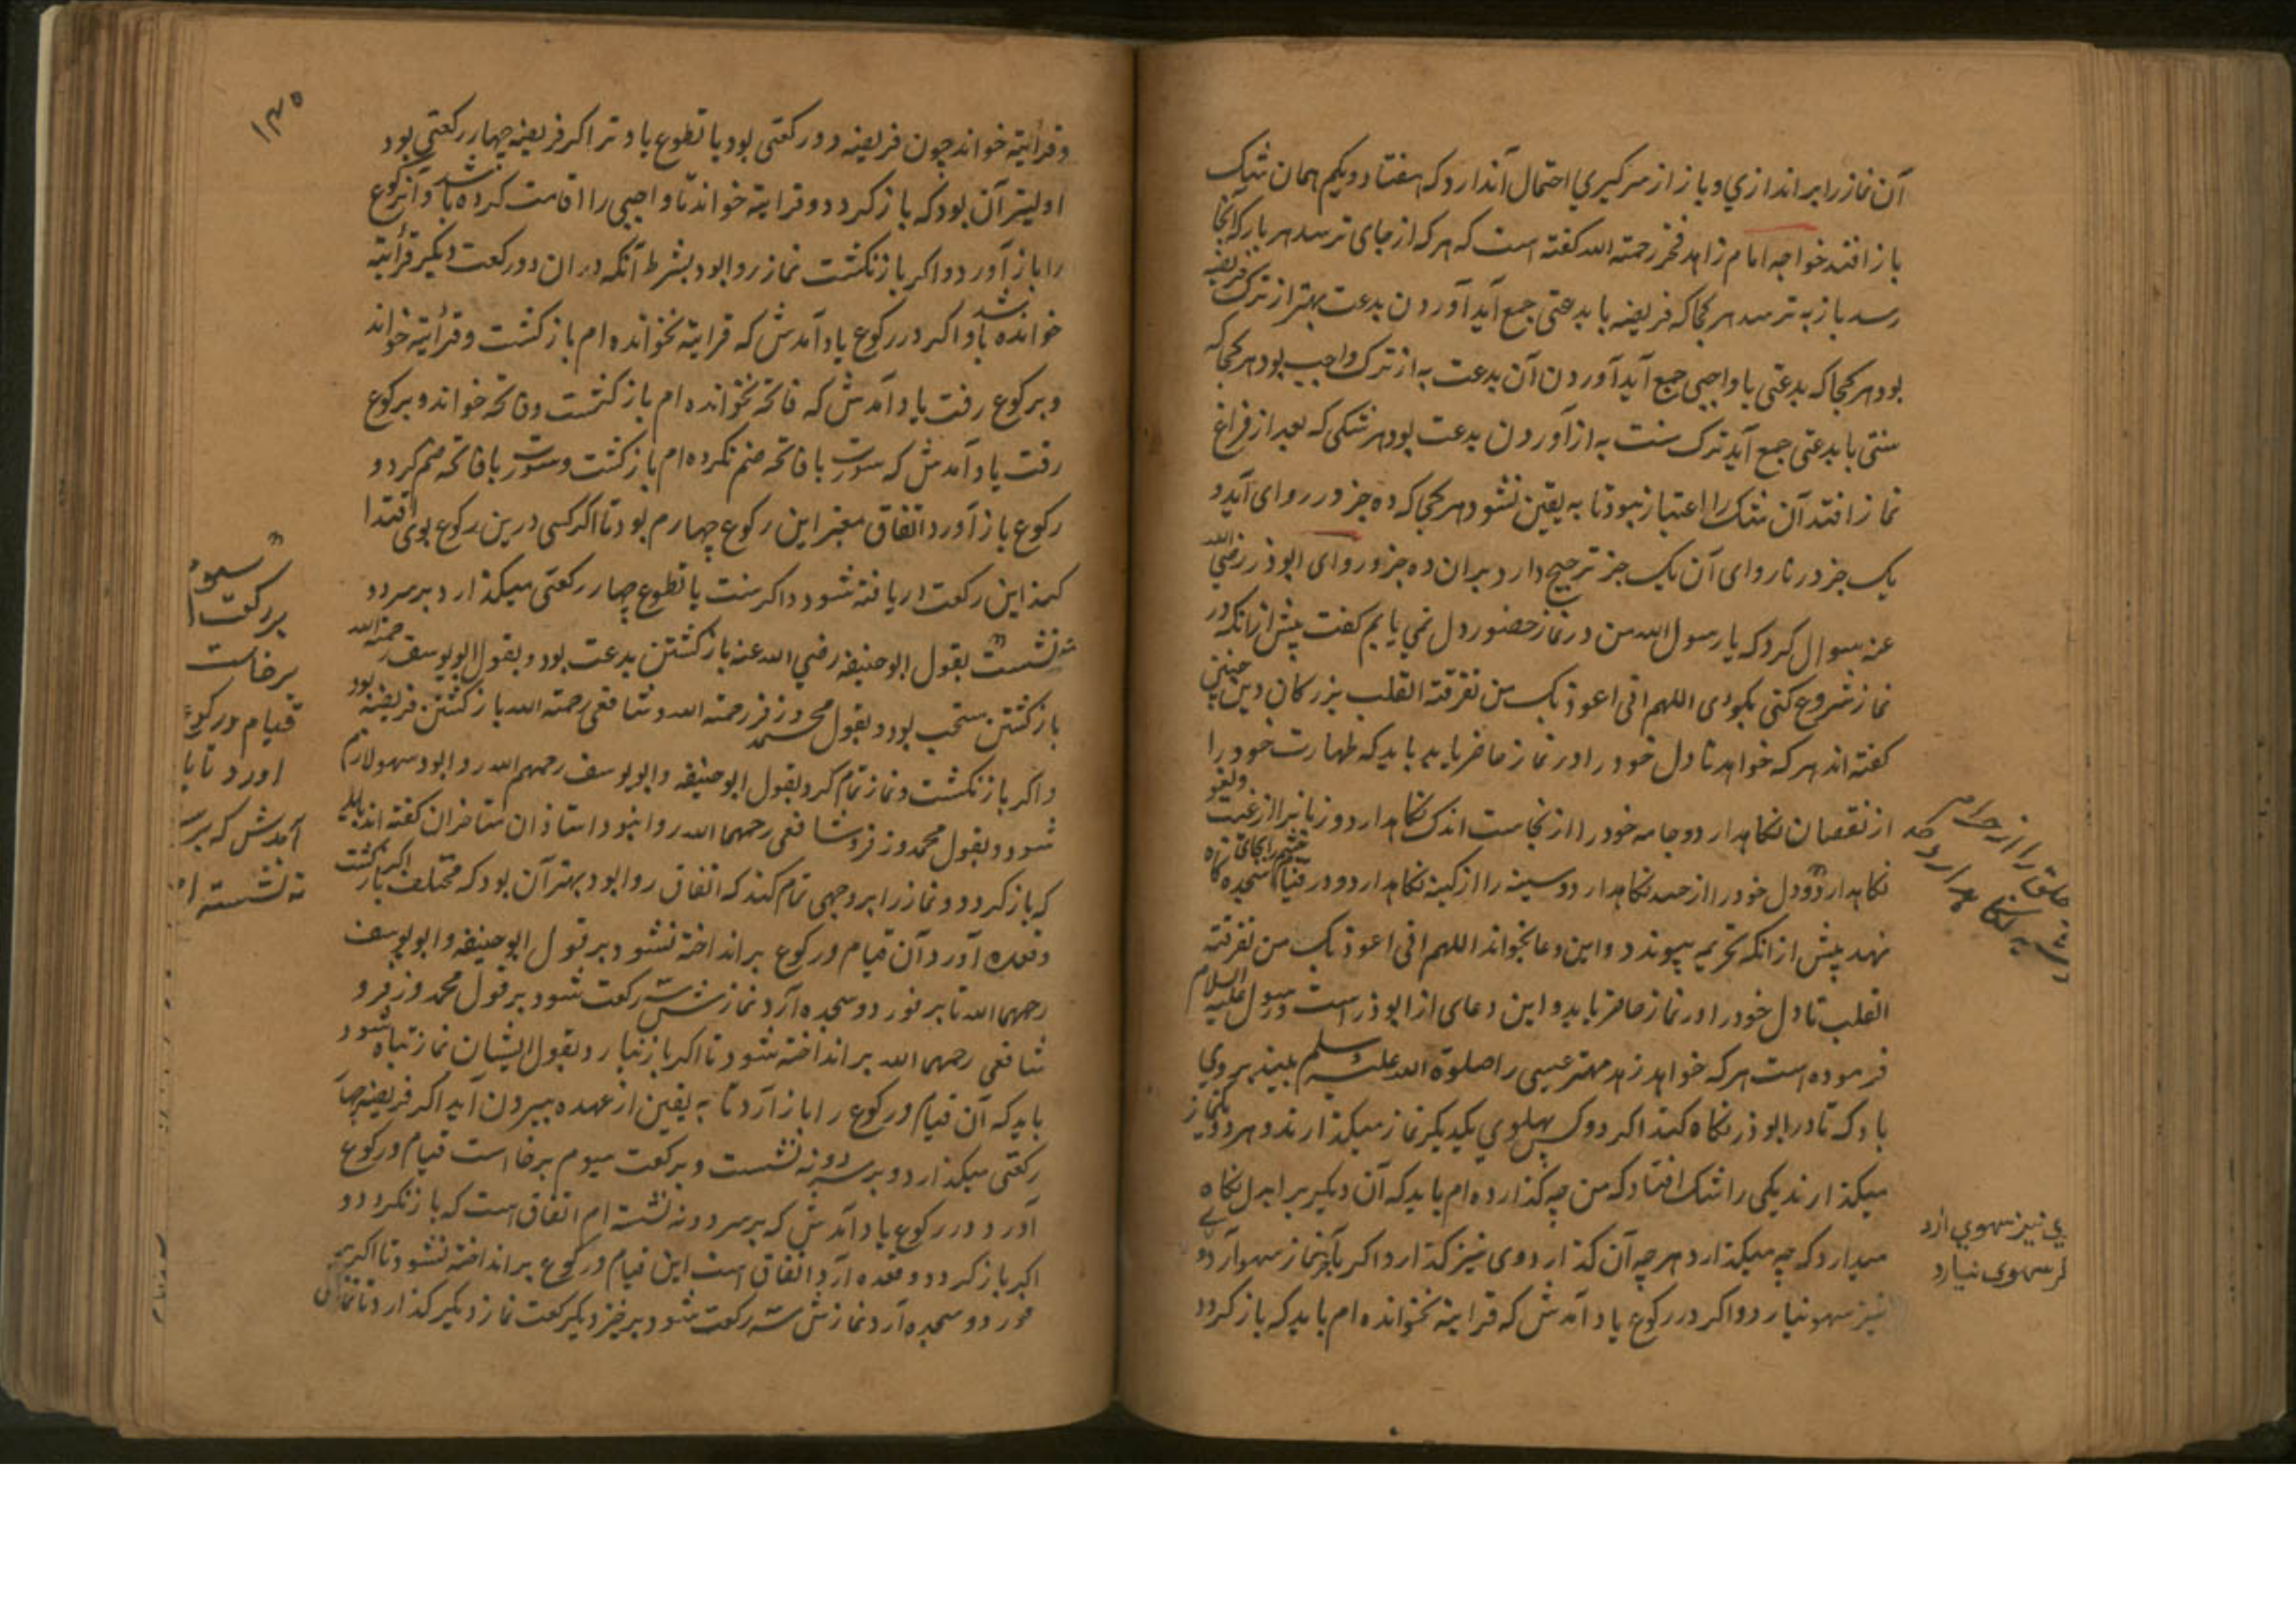 آن نماز را براندازي و باز از سر گيري احتمال آن دارد كه هفتاد و يكم همان شك
باز افتد خواجه امام زاهد فخر رحمته الله كفته است كه هر كه از جاى ترسد هر بار كه آنجا
رسد باز به ترسد هر كجا كه فريضه با بدعتى جمع آيد آوردن بدعت بهتر از ترك فريضه
بود هر كجا كه بدعتى با واجبى جمع آيد آوردن آن بدعت به از ترك واجب بود هر كجا كه
سنتى با بدعتى جمع آيد ترك سنت به از آوردن بدعت بود هر شكى كه بعد از فراغ
نماز افتد آن شك را اعتبار نبود تا به يقين نشود هر كجا كه ده جز در رواى آيد و
يك جز در نارواى آن يك جز ترجيح دارد بران ده جز و رواى ابوذر رضي الله
عنه سوال كرد كه يا رسول الله من در نماز حضور دل نمي يابم كفت پيش از انكه در
نماز شروع كنى بكوى اللهم انى اعوذ بك من تفرقته القلب بزركان دين چنين
كفته اند هر كه خواهد تا دل خود را در نماز حاضر يابد بايد كه طهارت خود را
از نقصان نكاهدارد و جامه خود را از نجاست اندك نكاهدارد و زبانرا از غيبت و لغو
نكاهدارد و دل خود را از حسد نكاهدارد و سينه را از كينه نكاهدارد و در قيام چشم را بجاى سجده كاه
نهد پيش از انكه تحريمه پيوندد و اين دعا بخواند اللهم انى اعوذ بك من تفرقته
القلب تا دل خود را در نماز حاضر يابد و اين دعاى از ابوذر است و رسول عليه السلام
فرموده است هر كه خواهد زهد مهتر عيسى را صلوة الله عليه وسلم ببيند بروي
باد كه تا در ابوذر نكاه كند اكر دو كس پهلوي يكديكر نماز ميكذارند و هر دو يكنماز
ميكذارند يكى را شك افتاد كه من چه كذارده ام بايد كه آن ديكر برابر دل نكاه
ميدارد كه چه ميكذارد هر چه آن كذارد وى نيز كذارد و اكر بآخر نماز سهو آرد و
نيز سهو نيارد و اكر در ركوع ياد آمدش كه قراءيته نخوانده ام بايد كه باز كردد
حلق را از حرام
نكاهدارد
ي نيز سهوي ارد
سهوى نيارد
١٣٥
و قرايته خواند چون فريضه دو ركعتى بود يا تطوع يا وتر اكر فريضه چهار ركعتى بود
اوليتر آن بود كه باز كردد و قرايته خواند تا واجبى را اقامت كرده باشد و آن ركوع
را باز آورد و اكر باز نكشت نماز روا بود بشرط آنكه دران دو ركعت ديكر قرأيته
خوانده باشد و اكر در ركوع ياد آمدش كه قرايته نخوانده ام باز كشت و قرأيته خواند
و بركوع رفت ياد آمدش كه فاتحه نخوانده ام باز كشت و فاتحه خواند و بركوع
رفت ياد آمدش كه سورت با فاتحه ضم نكرده ام باز كشت و سورت با فاتحه ضم كرد و
ركوع باز آورد اتفاق معتبر اين ركوع چهارم بود تا اكر كسى درين ركوع بوى اقتدا
كند اين ركعت دريافته شود و اكر سنت يا تطوع چهار ركعتى ميكذارد بر سر دو
نه نشست بقول ابو حنيفه رضي الله عنه باز كشتن بدعت بود و بقول ابو يوسف رحمته الله
باز كشتن مستحب بود و بقول محمد و زفر رحمته الله و شافعى رحمته الله باز كشتن فريضه بود
و اكر باز نكشت و نماز تمام كرد بقول ابو حنيفه و ابو يوسف رحمهم الله روا بود سهو لازم
شود و بقول محمد و زفر و شافعى رحمهما الله روا نبود و استاذان متاخران كفته اند بايد
كه باز كردد و نماز را بر وجهى تمام كند كه اتفاق روا بود بهتر آن بود كه مختلف اكر باز كشت
و قعده آورد آن قيام و ركوع بر انداخته نشود بر قول ابو حنيفه و ابو يوسف
رحمهما الله تا بر فور دو سجده آرد نماز شش ركعت شود بر قول محمد و زفر و
شافعى رحمهما الله بر انداخته شود تا اكر باز نيارد بقول ايشان نماز تباه شود
بايد كه آن قيام و ركوع را باز آرد تا به يقين از عهده بيرون آيد اكر فريضه چهار
ركعتى ميكذارد و بر سر دو نه نشست و بركعت سيوم برخاست قيام و ركوع
آورد و در ركوع ياد آمدش كه بر سر دو نه نشسته ام اتفاق است كه باز نكردد و
اكر باز كردد و قعده آرد اتفاق است اين قيام و ركوع بر انداخته نشود تا اكر بر
فور دو سجده آرد نمازش سه ركعت شود برخيزد يكركعت نماز ديكر كذارد تا نماز
سيوم
بركعت
برخاست
قيام و ركوع
اورد تا يا
آمدش كه بر سر
نه نشسته ام